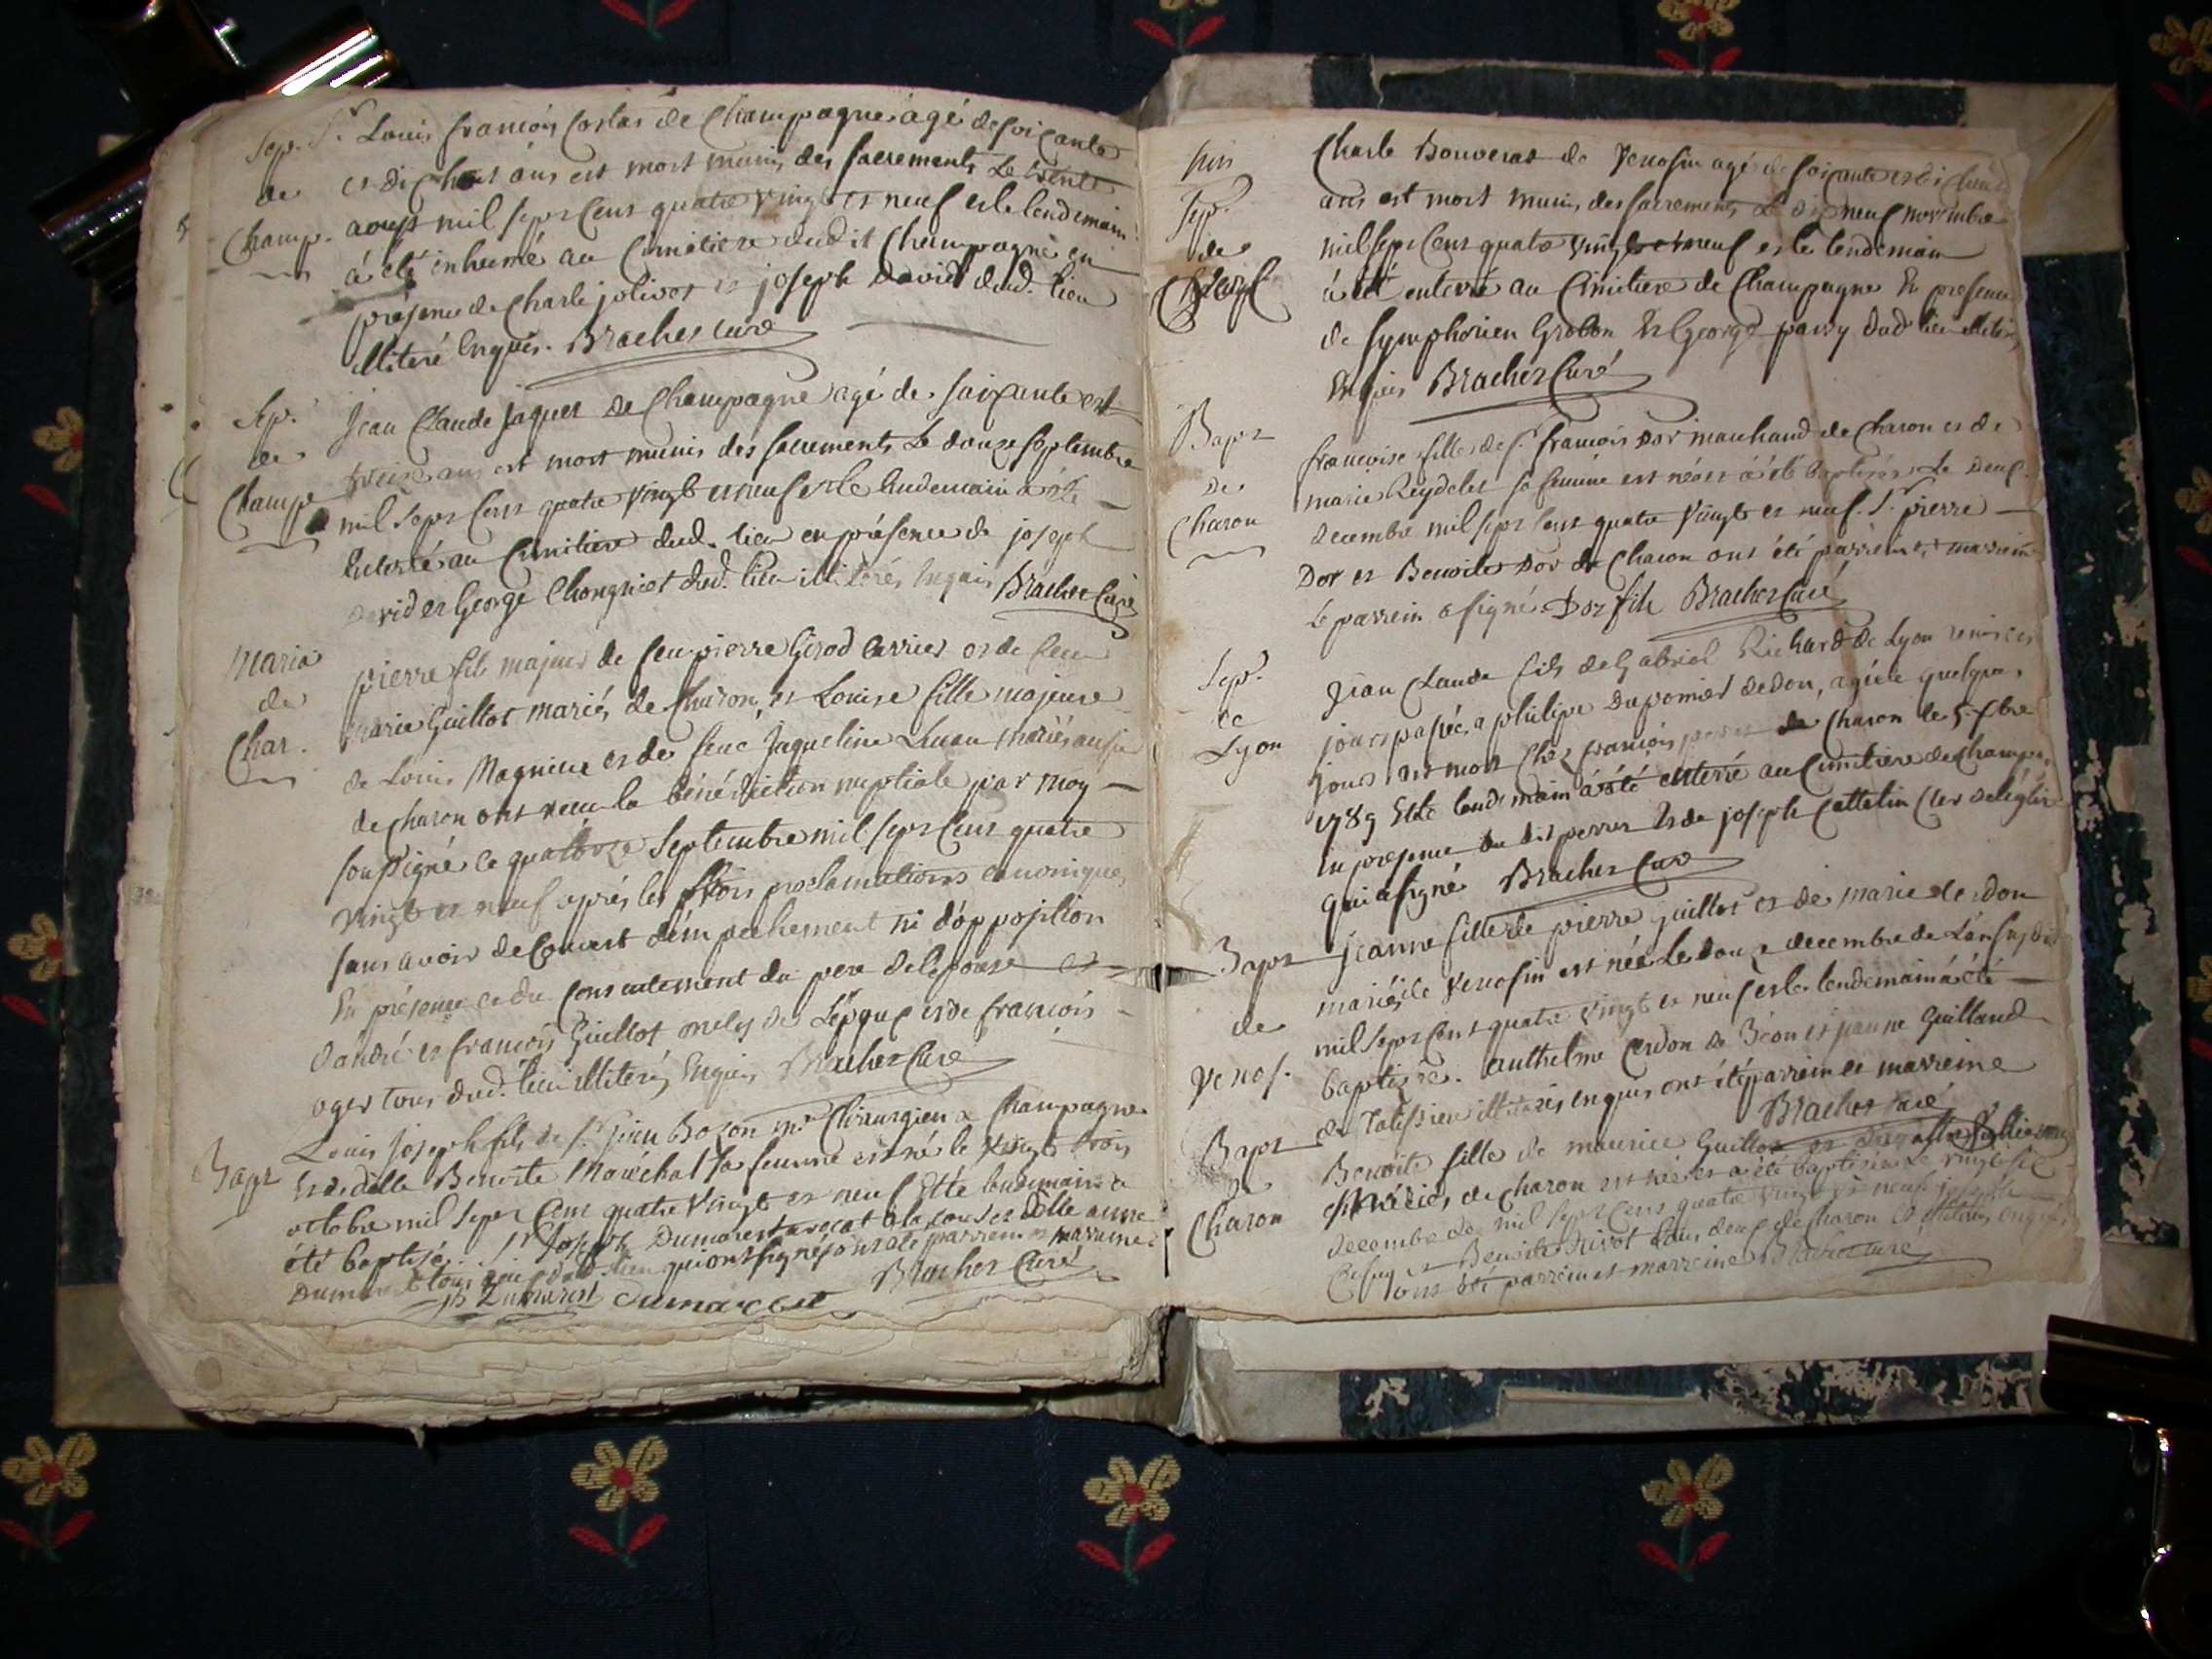 Sep. Sr Louis françois Costas de Champagne âgé de soiçante
de et dix huit ans est mort munis des sacrements Le trente
Champ. aoust mil sept cens quatre vingt et neuf et le lendemain
à été inhumé au Cimetiere dudit Champagne en
présence de Charle jolivet et joseph David dud. lieu
illiteré Enquis. Brachet curé
Sep. Jean Claude jaquet de Champagne agé de soixante et
de treize ans est mort munis des sacrements Le douze septembre
Champ mil sept cens quatre vingt et neuf et le lendemain a été
Enterré au Cimitiere dud. lieu en présence de joseph
david et George Chongniet dud. lieu illiterés Enquis Brachet Curé
Maria pierre fils majeur de feu pierre Girod Carrier et de feue
de marie Guillot mariés de Charon, et Louise fille majeure
Char. de Louis Magnieu et de feue jaqueline Luuan mariés aussi
de Charon ont reçu la bénédiction nuptiale par moy
soussigné ce quatorze Septembre mil sept cens quatre
vingt et neuf aprés les trois proclamations canoniques
sans avoir decouvert d'émpechement ni d'opposition
En présence et du Consentement du pere de lepouse et
d'andré et françois Guillot oncles de L'époux et de françois
oger tous dud. lieu illiterés Enquis Brachet Curé
Bapt Louis joseph fils de sr jean Bozon me Chirurgien a Champagne
et de delle Benoite Maréchal sa femme est né le vingt trois
octobre mil sept Cens quatre vingt et neuf Et le lendemain a
été baptisé. Sr joseph Dumarest avocat à la cour et delle anne
Dumarest tous deux dud. lieu qui ont signé sont été parrein et marreine
jh Dumarest dumarest Brachet Curé
Charle Bouverat de Venosin agé de soiçante et dix huit
Sep. ans est mort munis des sacrements Le dix neuf novembre
de mil sept Cens quatre vingt et neuf et le lendemain
à été enterré au Cimitiere de Champagne En presence
de symphorien Grobon Et George parry dud lieu illiterés
Enquis Brachet Curé
Bapt françoise fille de sr françois Dor marchand de Charon et de
de marie Reydelet sa femme est née et à été baptisée Le deux
Charon decembre mil sept Cens quatre vingt et neuf. Sr pierre
Dor et Benoite Dor de Charon ont été parrein et marreine
Le parrein a signé. Dor fils Brachet Curé
Sep. Jean Claude fils de Gabriel Richard de Lyon remis ces
de jours passés a philipe Dupomier de don, agé de quelques
Lyon jours est mort Chez françois perret de Charon le 5 xbre
1789 Et le lendemain a été enterré au Cimitiere de Champe.
En presence du dit perret Et de joseph Cattelin Clerc de l'église
qui a signé Brachet Curé
Bapt jeanne fille de pierre guillot et de marie de don
de mariés de Venosin est née Le douze decembre de L'an susdit
Venos. mil sept Cens quatre vingt et neuf et le lendemain a été
baptisée. anthelme Cerdon de Béon et jeanne Guilland
de Talissieu illiterés enquis ont été parrein et marreine
Brachet curé
Bapt Benoite fille de maurice Guillot et
de mariés de Charon est née et a été baptisée Le vingt six
Charon decembre de mil sept Cens quatre vingt et neuf. joseph
et Benoite Tous deux de Charon et illiterés enquis
ont été parrein et marreine Brachet curé